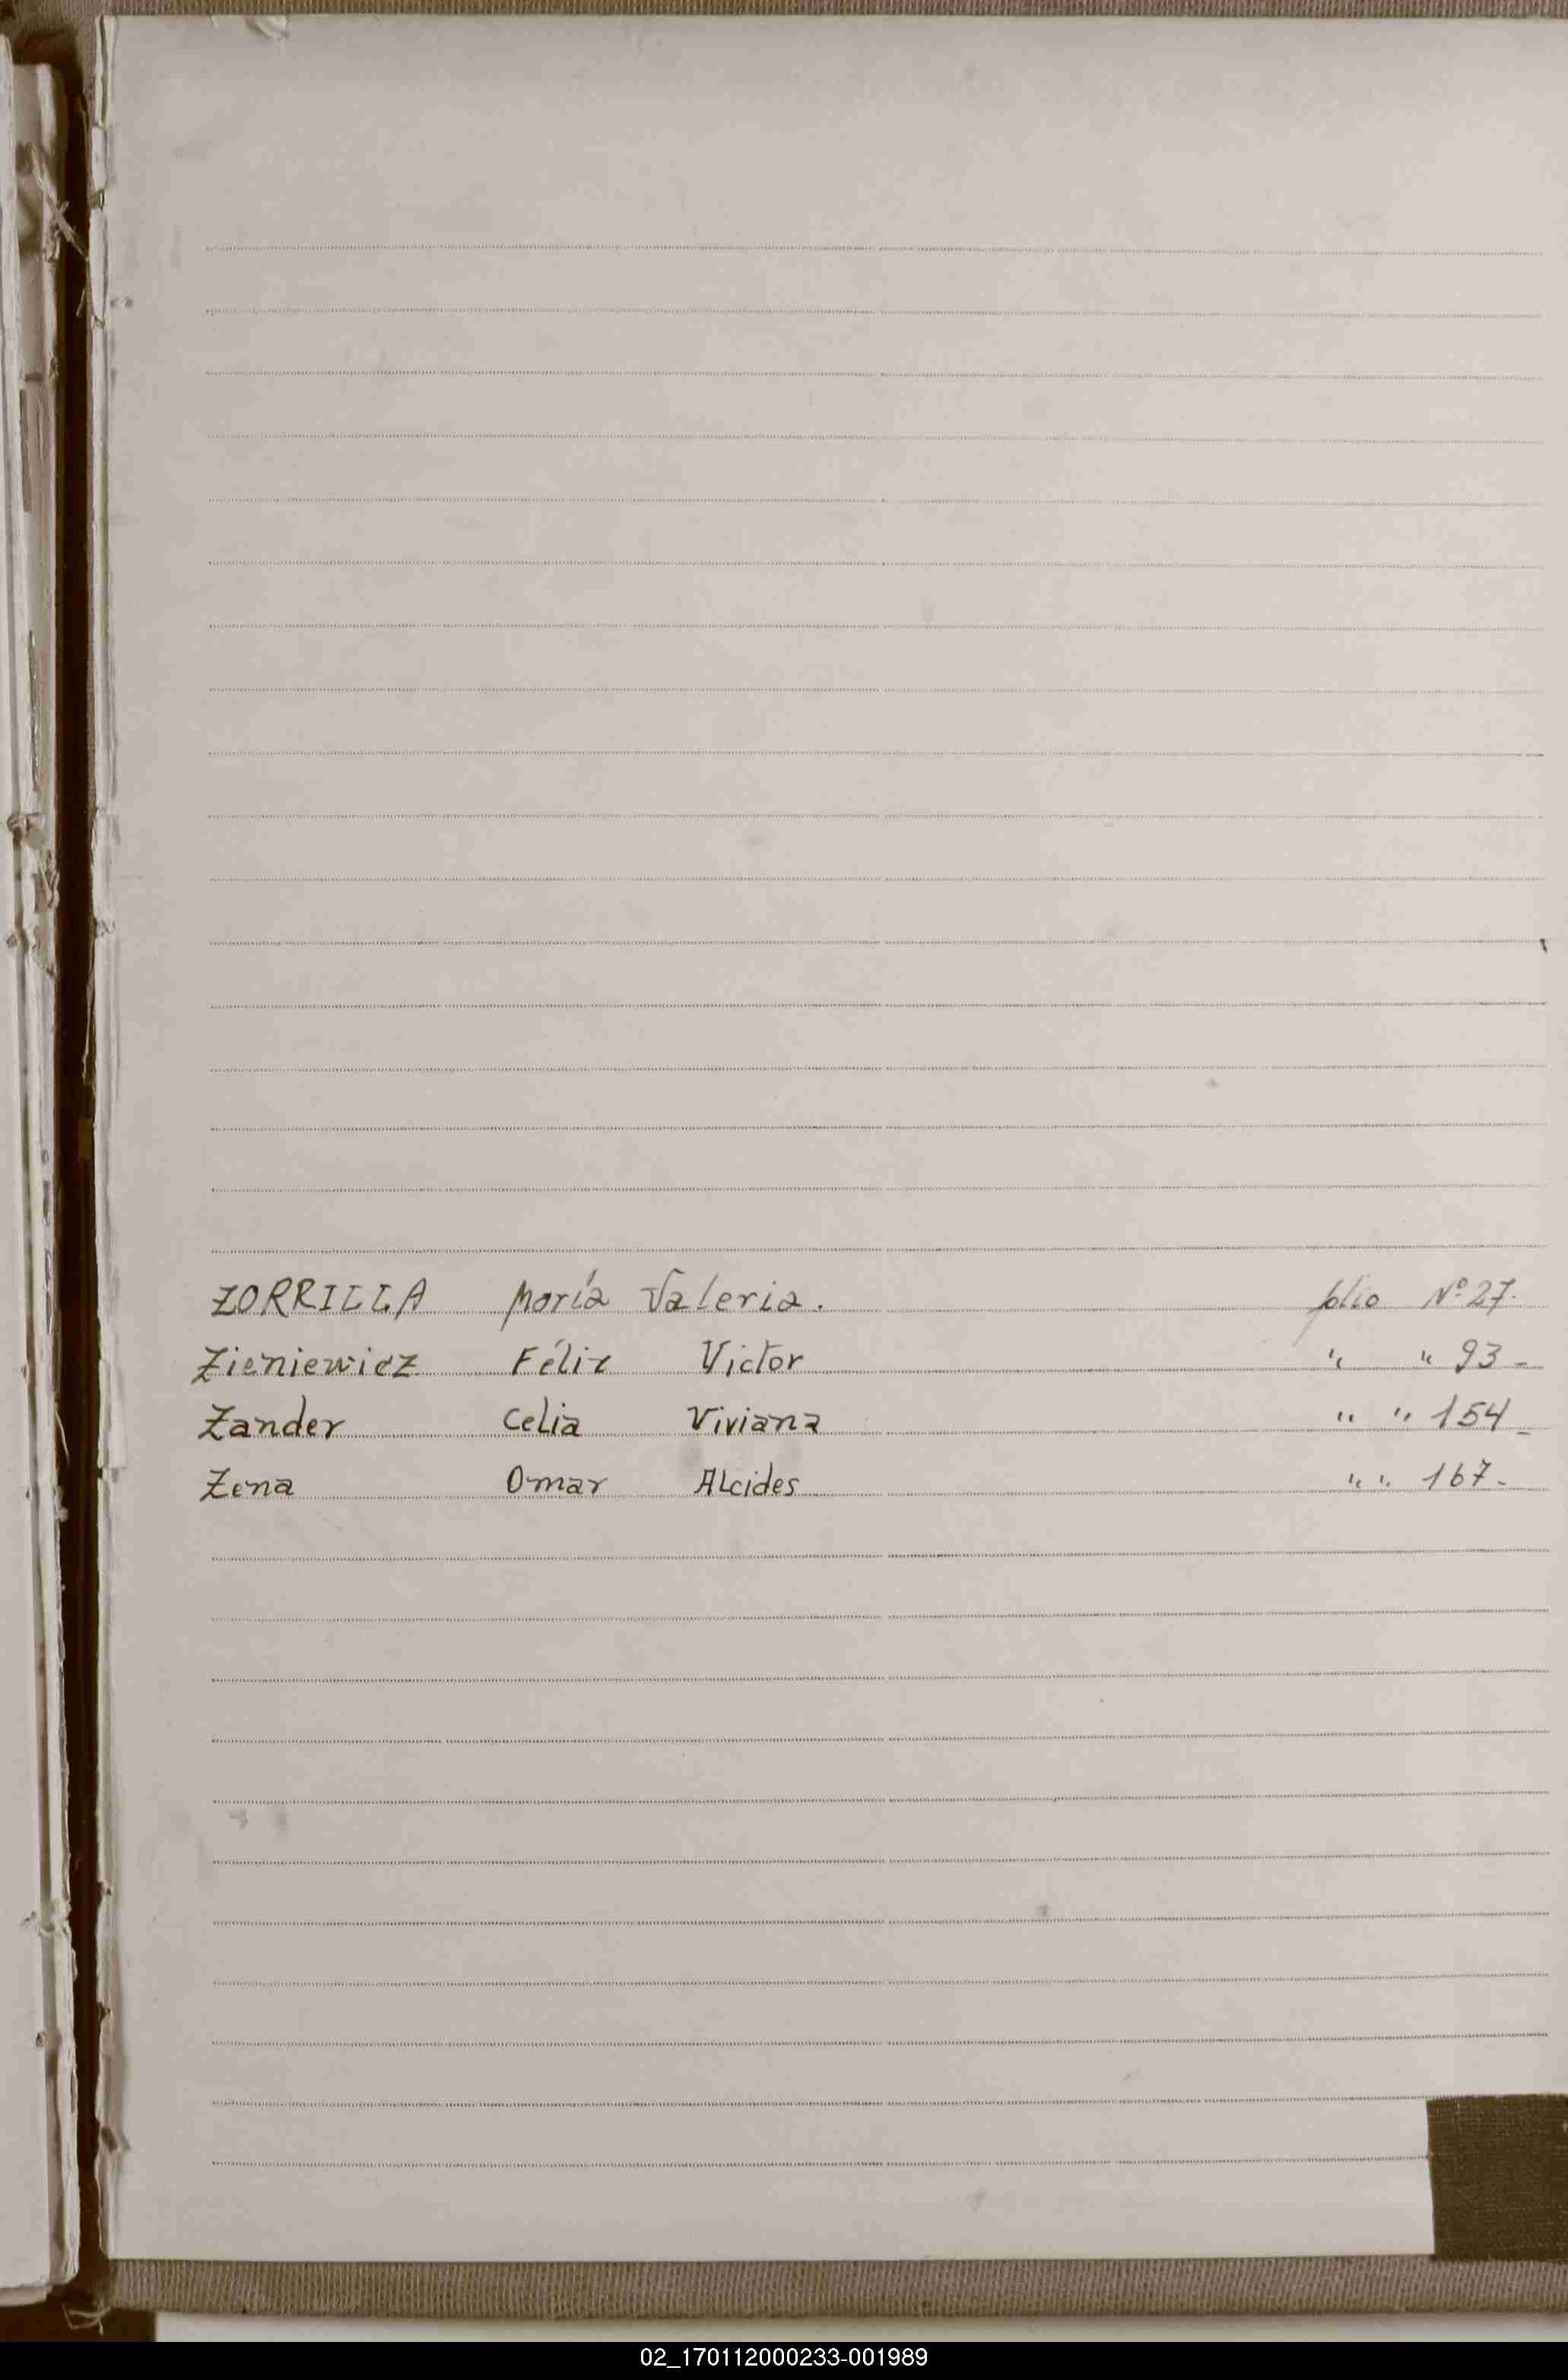 ZORRILLA María Valeria. folio Nº 27.
Zieniewicz Félix Victor " " 93 -
Zander Celia Viviana " " 154 -
Zena Omar Alcides " " 167 -
02_170112000233-001989